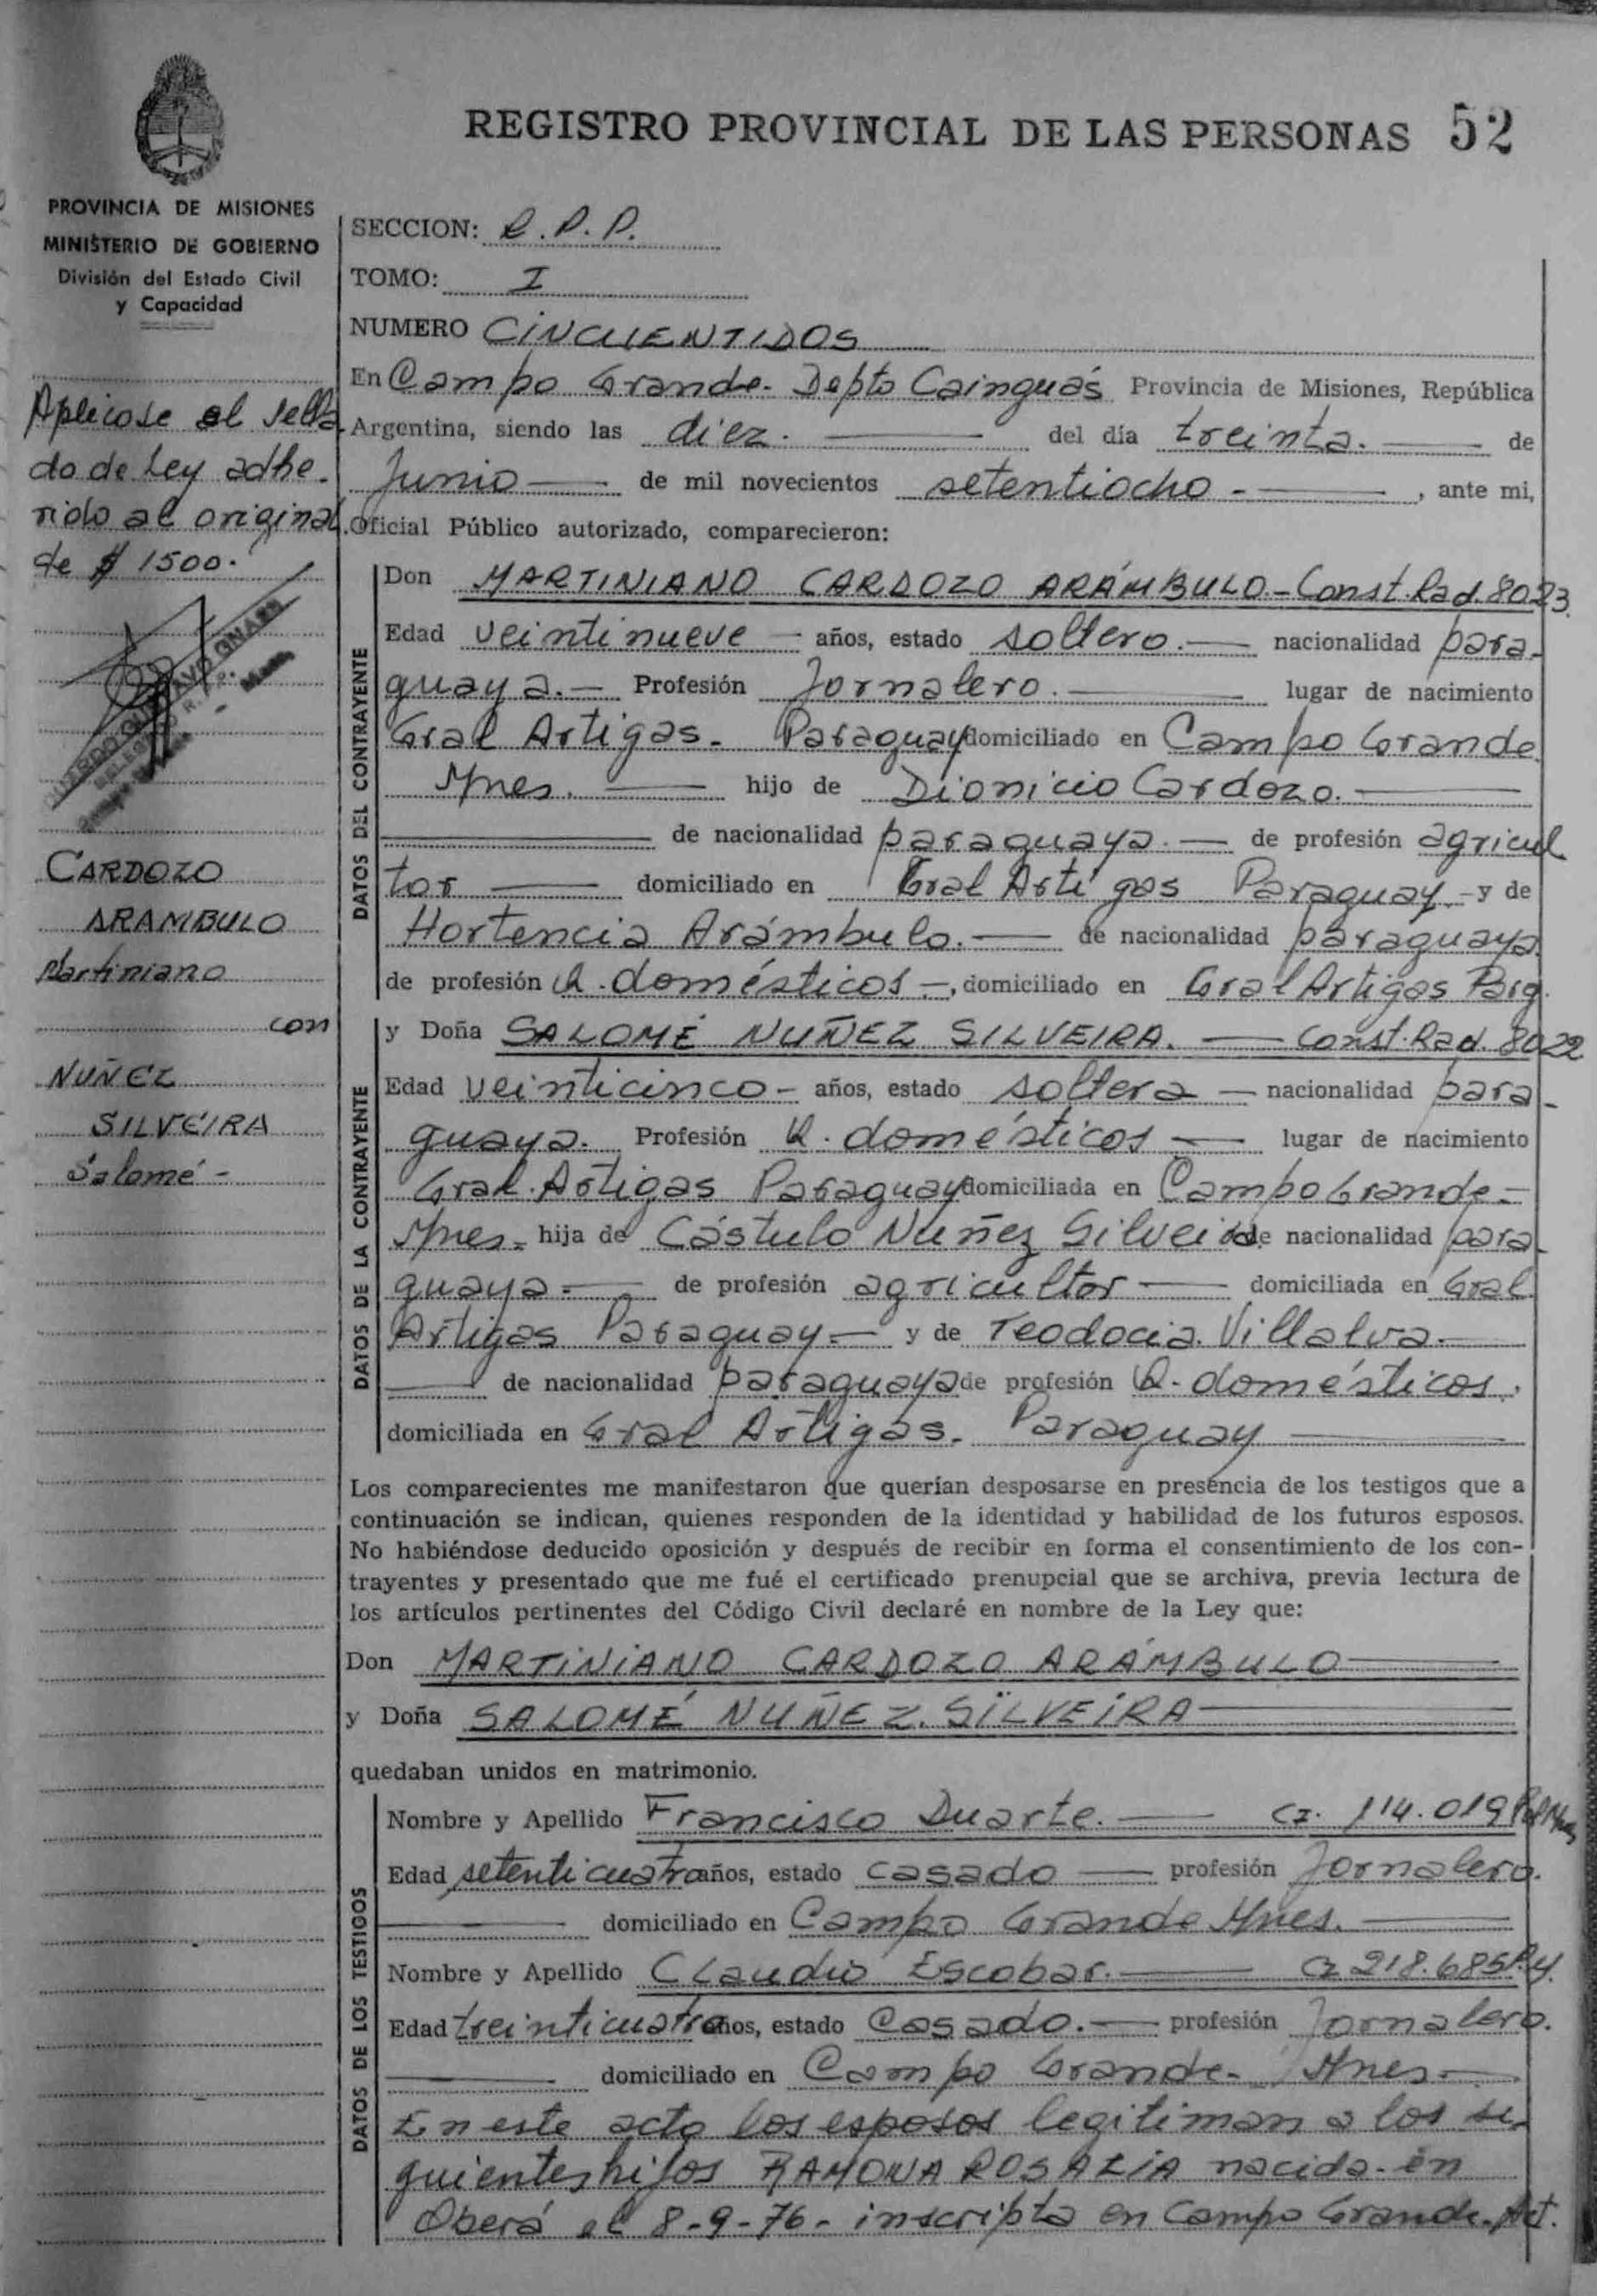 REGISTRO PROVINCIAL DE LAS PERSONAS 52
PROVINCIA DE MISIONES
MINISTERIO DE GOBIERNO
División del Estado Civil
y Capacidad
Aplicose el sella
do de Ley adhe-
rido al original
de $ 1500.
CARDOZO
ARAMBULO
Martiniano
con
NUÑEZ
SILVEIRA
Salomé -
SECCION: R.P.P.
TOMO: I
NUMERO CINCUENTIDOS
En Campo Grande - Depto Cainguás Provincia de Misiones, República
Argentina, siendo las diez. — del día treinta. — de
Junio — de mil novecientos setentiocho - —, ante mi,
Oficial Público autorizado, comparecieron:
DATOS DEL CONTRAYENTE
Don MARTINIANO CARDOZO ARÁMBULO - Const. Rad. 8023
Edad veintinueve — años, estado soltero. — nacionalidad para-
guaya. — Profesión Jornalero. — lugar de nacimiento
Gral Artigas - Paraguay domiciliado en Campo Grande
Mnes. — hijo de Dionicio Cardozo. —
— de nacionalidad paraguaya. — de profesión agricul
tor — domiciliado en Gral Artigas Paraguay - y de
Hortencia Arámbulo. — de nacionalidad paraguaya
de profesión Q. domésticos -, domiciliado en Gral Artigas Parg.
DATOS DE LA CONTRAYENTE
y Doña SALOMÉ NUÑEZ SILVEIRA. — Const. Rad. 8022
Edad veinticinco - años, estado soltera — nacionalidad para-
guaya. Profesión Q. domésticos — lugar de nacimiento
Gral. Artigas Paraguay domiciliada en Campo Grande -
Mnes - hija de Cástulo Nuñez Silveira de nacionalidad para-
guaya - — de profesión agricultor — domiciliada en Gral
Artigas Paraguay - y de Teodocia Villalva -
— de nacionalidad paraguaya de profesión Q. domésticos,
domiciliada en Gral Artigas - Paraguay —
Los comparecientes me manifestaron que querían desposarse en presencia de los testigos que a
continuación se indican, quienes responden de la identidad y habilidad de los futuros esposos.
No habiéndose deducido oposición y después de recibir en forma el consentimiento de los con-
trayentes y presentado que me fué el certificado prenupcial que se archiva, previa lectura de
los artículos pertinentes del Código Civil declaré en nombre de la Ley que:
Don MARTINIANO CARDOZO ARÁMBULO —
y Doña SALOMÉ NUÑEZ SILVEIRA —
quedaban unidos en matrimonio.
DATOS DE LOS TESTIGOS
Nombre y Apellido Francisco Duarte. — CI. 114.019 Pol Mnes
Edad setenticuatro años, estado casado — profesión Jornalero.
— domiciliado en Campo Grande Mnes. —
Nombre y Apellido Claudio Escobar. — CI 218.685
Edad treinticuatro años, estado Casado. — profesión Jornalero.
— domiciliado en Campo Grande - Mnes -
En este acto los esposos legitiman a los si-
guientes hijos RAMONA ROSALIA nacida en
Oberá el 8-9-76 - inscripta en Campo Grande - Act.